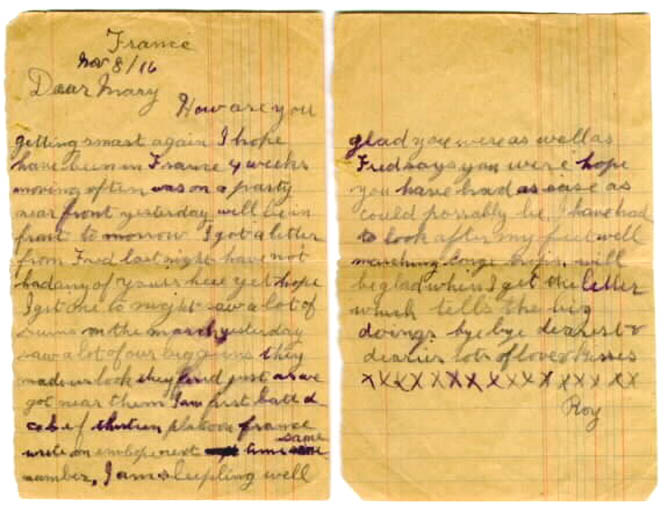 France
Nov 8/16
Dear Mary
How are you
getting smart again I hope
have been in France 4 weeks
moving often was on a party
near front yesterday will be in
front to morrow I got a letter
from Fred last night have not
had any of yours here yet hope
I get one to night saw a lot of
ruins on the march yesterday
saw a lot of our big guns they
made us look they fired just as we
got near them I am first batt d
c b e f thirteen platoon france
write on envlop next time same
number, I am sleepling well
glad you were as well as
Fred says you were hope
you have had as ease as
could possably be I have had
to look after my feet well
marching will
be glad when I get the letter
which tells the big
doings bye bye dearest &
dearies lots of love & kisses
x x x x x x x x x x x x x x x
Roy